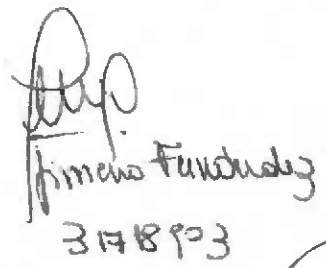 Jimena Fernández
3178903